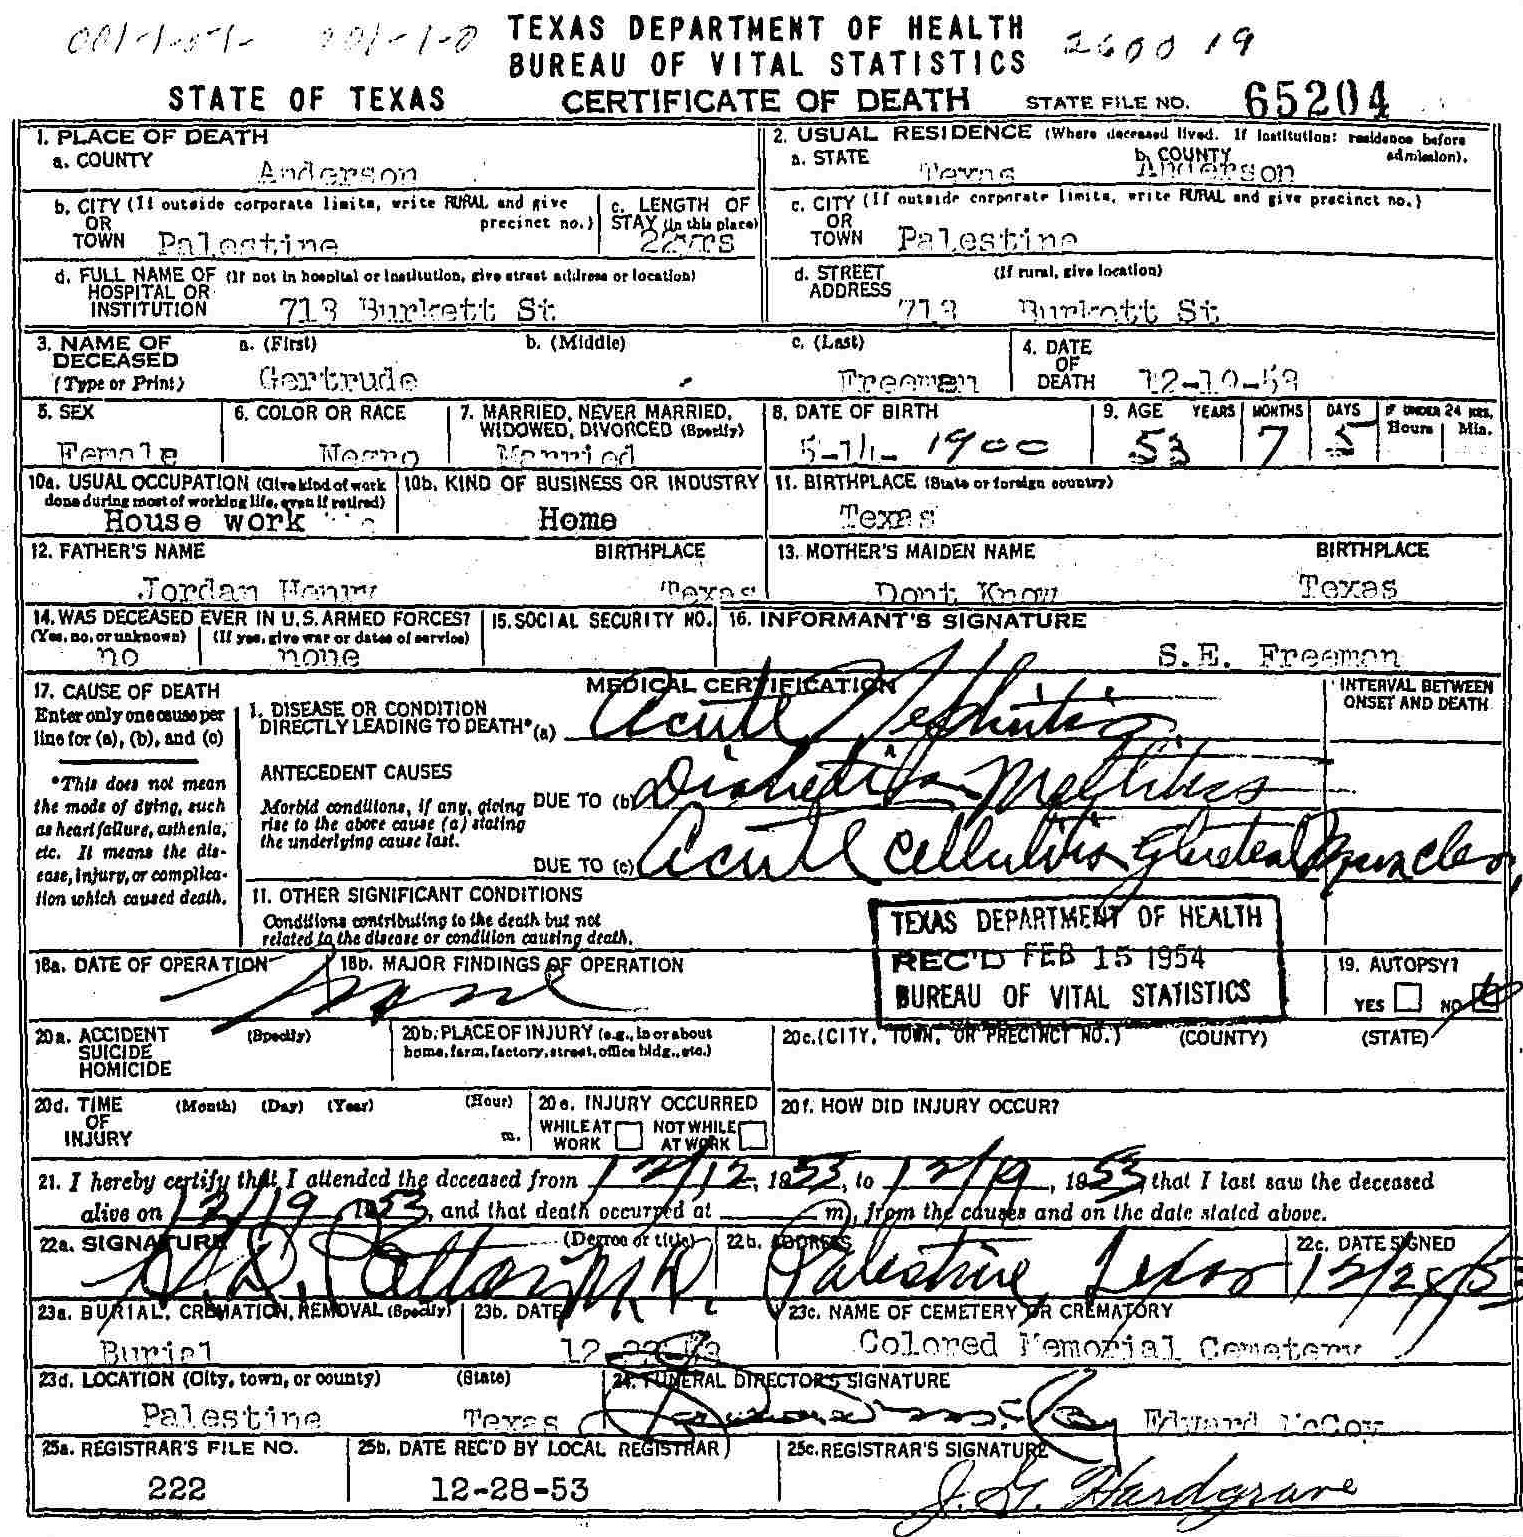 TEXAS DEPARTMENT OF HEALTH
BUREAU OF VITAL STATISTICS
2600 19
STATE OF TEXAS CERTIFICATE OF DEATH STATE FILE NO. 65204
1. PLACE OF DEATH
a. COUNTY Anderson
2. USUAL RESIDENCE (Where deceased lived. If institution: residence before admission).
a. STATE Texas b. COUNTY Anderson
b. CITY (If outside corporate limits, write RURAL and give precinct no.)
OR TOWN Palestine
c. LENGTH OF STAY (in this place) 22yrs
c. CITY (If outside corporate limits, write RURAL and give precinct no.)
OR TOWN Palestine
d. FULL NAME OF HOSPITAL OR INSTITUTION (If not in hospital or institution, give street address or location)
713 Burkett St
d. STREET ADDRESS (If rural, give location)
713 Burkett St
3. NAME OF DECEASED (Type or Print)
a. (First) Gertrude
b. (Middle) -
c. (Last) Freeman
4. DATE OF DEATH 12-19-53
5. SEX Female
6. COLOR OR RACE Negro
7. MARRIED, NEVER MARRIED, WIDOWED, DIVORCED (Specify) Married
8. DATE OF BIRTH 5-14- 1900
9. AGE YEARS 53 MONTHS 7 DAYS 5 IF UNDER 24 HRS. Hours Min.
10a. USUAL OCCUPATION (Give kind of work done during most of working life, even if retired)
House work
10b. KIND OF BUSINESS OR INDUSTRY
Home
11. BIRTHPLACE (State or foreign country)
Texas
12. FATHER'S NAME BIRTHPLACE
Jordan Henry Texas
13. MOTHER'S MAIDEN NAME BIRTHPLACE
Dont Know Texas
14. WAS DECEASED EVER IN U.S. ARMED FORCES?
(Yes, no, or unknown) (If yes, give war or dates of service)
no none
15. SOCIAL SECURITY NO.
16. INFORMANT'S SIGNATURE
S.E. Freeman
17. CAUSE OF DEATH
Enter only one cause per line for (a), (b), and (c)
*This does not mean the mode of dying, such as heart failure, asthenia, etc. It means the disease, injury, or complication which caused death.
MEDICAL CERTIFICATION
INTERVAL BETWEEN ONSET AND DEATH
1. DISEASE OR CONDITION DIRECTLY LEADING TO DEATH* (a) Acute Nephritis
ANTECEDENT CAUSES
Morbid conditions, if any, giving rise to the above cause (a) stating the underlying cause last.
DUE TO (b) Diabetis Mellitus
DUE TO (c) Acute Cellulitis Gluteal Muscles,
11. OTHER SIGNIFICANT CONDITIONS
Conditions contributing to the death but not related to the disease or condition causing death.
TEXAS DEPARTMENT OF HEALTH
REC'D FEB 15 1954
BUREAU OF VITAL STATISTICS
18a. DATE OF OPERATION
None
18b. MAJOR FINDINGS OF OPERATION
19. AUTOPSY?
YES NO
20a. ACCIDENT SUICIDE HOMICIDE (Specify)
20b. PLACE OF INJURY (e.g., in or about home, farm, factory, street, office bldg., etc.)
20c. (CITY, TOWN, OR PRECINCT NO.) (COUNTY) (STATE)
20d. TIME OF INJURY (Month) (Day) (Year) (Hour) m.
20e. INJURY OCCURRED
WHILE AT WORK NOT WHILE AT WORK
20f. HOW DID INJURY OCCUR?
21. I hereby certify that I attended the deceased from 12/12, 1953, to 12/19, 1953, that I last saw the deceased
alive on 12/19 1953, and that death occurred at m, from the causes and on the date stated above.
22a. SIGNATURE (Degree or title)
M.D.
22b. ADDRESS
Palestine, Texas
22c. DATE SIGNED
23a. BURIAL, CREMATION, REMOVAL (Specify)
Burial
23b. DATE
23c. NAME OF CEMETERY OR CREMATORY
Colored Memorial Cemetery
23d. LOCATION (City, town, or county) (State)
Palestine Texas
24. FUNERAL DIRECTOR'S SIGNATURE
Edward McCoy
25a. REGISTRAR'S FILE NO.
222
25b. DATE REC'D BY LOCAL REGISTRAR
12-28-53
25c. REGISTRAR'S SIGNATURE
J. G. Hardgrave